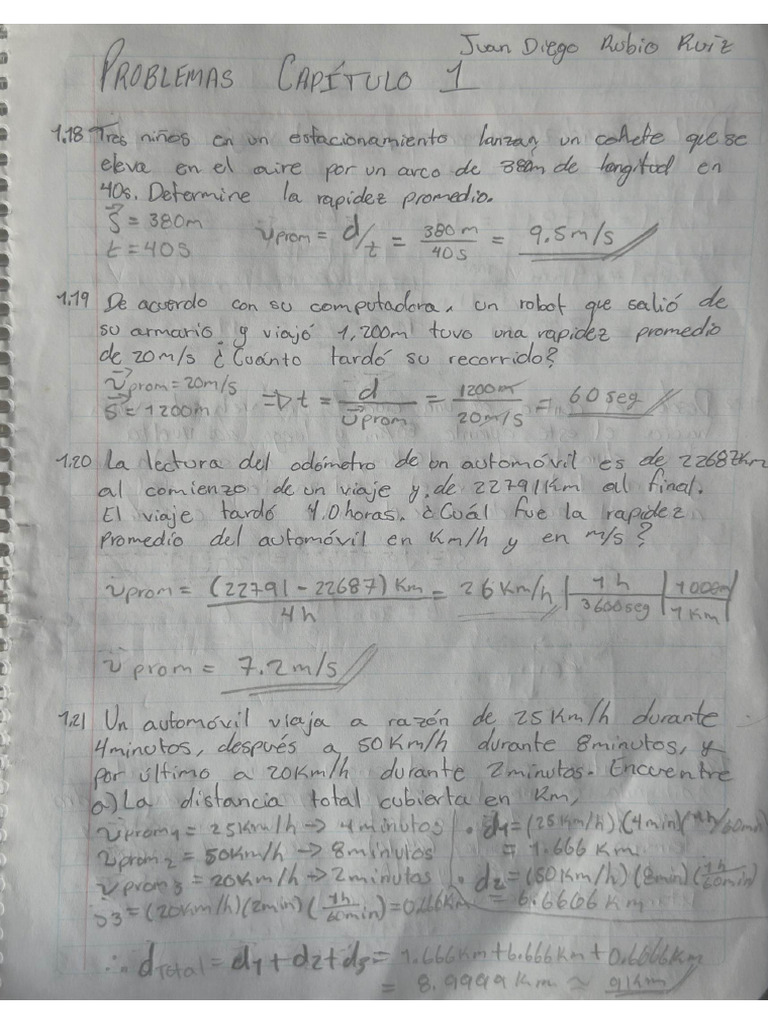 Juan Diego Rubio Ruiz
PROBLEMAS CAPÍTULO 1
1.18 Tres niños en un estacionamiento lanzan un cohete que se
eleva en el aire por un arco de 380m de longitud en
40s. Determine la rapidez promedio.
S⃗ = 380m
t = 40s
v prom = d/t = 380 m / 40 s = 9.5 m/s
1.19 De acuerdo con su computadora, un robot que salió de
su armario y viajó 1,200m tuvo una rapidez promedio
de 20 m/s ¿Cuánto tardó su recorrido?
v⃗ prom = 20 m/s
S⃗ = 1200m
=> t = d / v prom = 1200m / 20 m/s = 60 seg
1.20 La lectura del odómetro de un automóvil es de 22687Km
al comienzo de un viaje y de 22791Km al final.
El viaje tardó 4.0 horas. ¿Cuál fue la rapidez
promedio del automóvil en Km/h y en m/s?
v prom = (22791 - 22687) Km / 4h = 26 Km/h | 1h / 3600 seg | 1000m / 1 Km |
v prom = 7.2 m/s
1.21 Un automóvil viaja a razón de 25 Km/h durante
4minutos, después a 50 Km/h durante 8minutos, y
por último a 20Km/h durante 2minutos. Encuentre
a) La distancia total cubierta en Km,
v prom1 = 25Km/h -> 4minutos
v prom2 = 50Km/h -> 8minutos
v prom3 = 20Km/h -> 2minutos
S3 = (20Km/h)(2min)(1h/60min) = 0.666Km
• d1 = (25 Km/h)(4min)(1h/60min)
= 1.666 Km
• d2 = (50Km/h)(8min)(1h/60min)
= 6.6666 Km
∴ dTotal = d1 + d2 + d3 = 1.666Km + 6.666Km + 0.6666Km
= 8.9999 Km ≈ 9Km